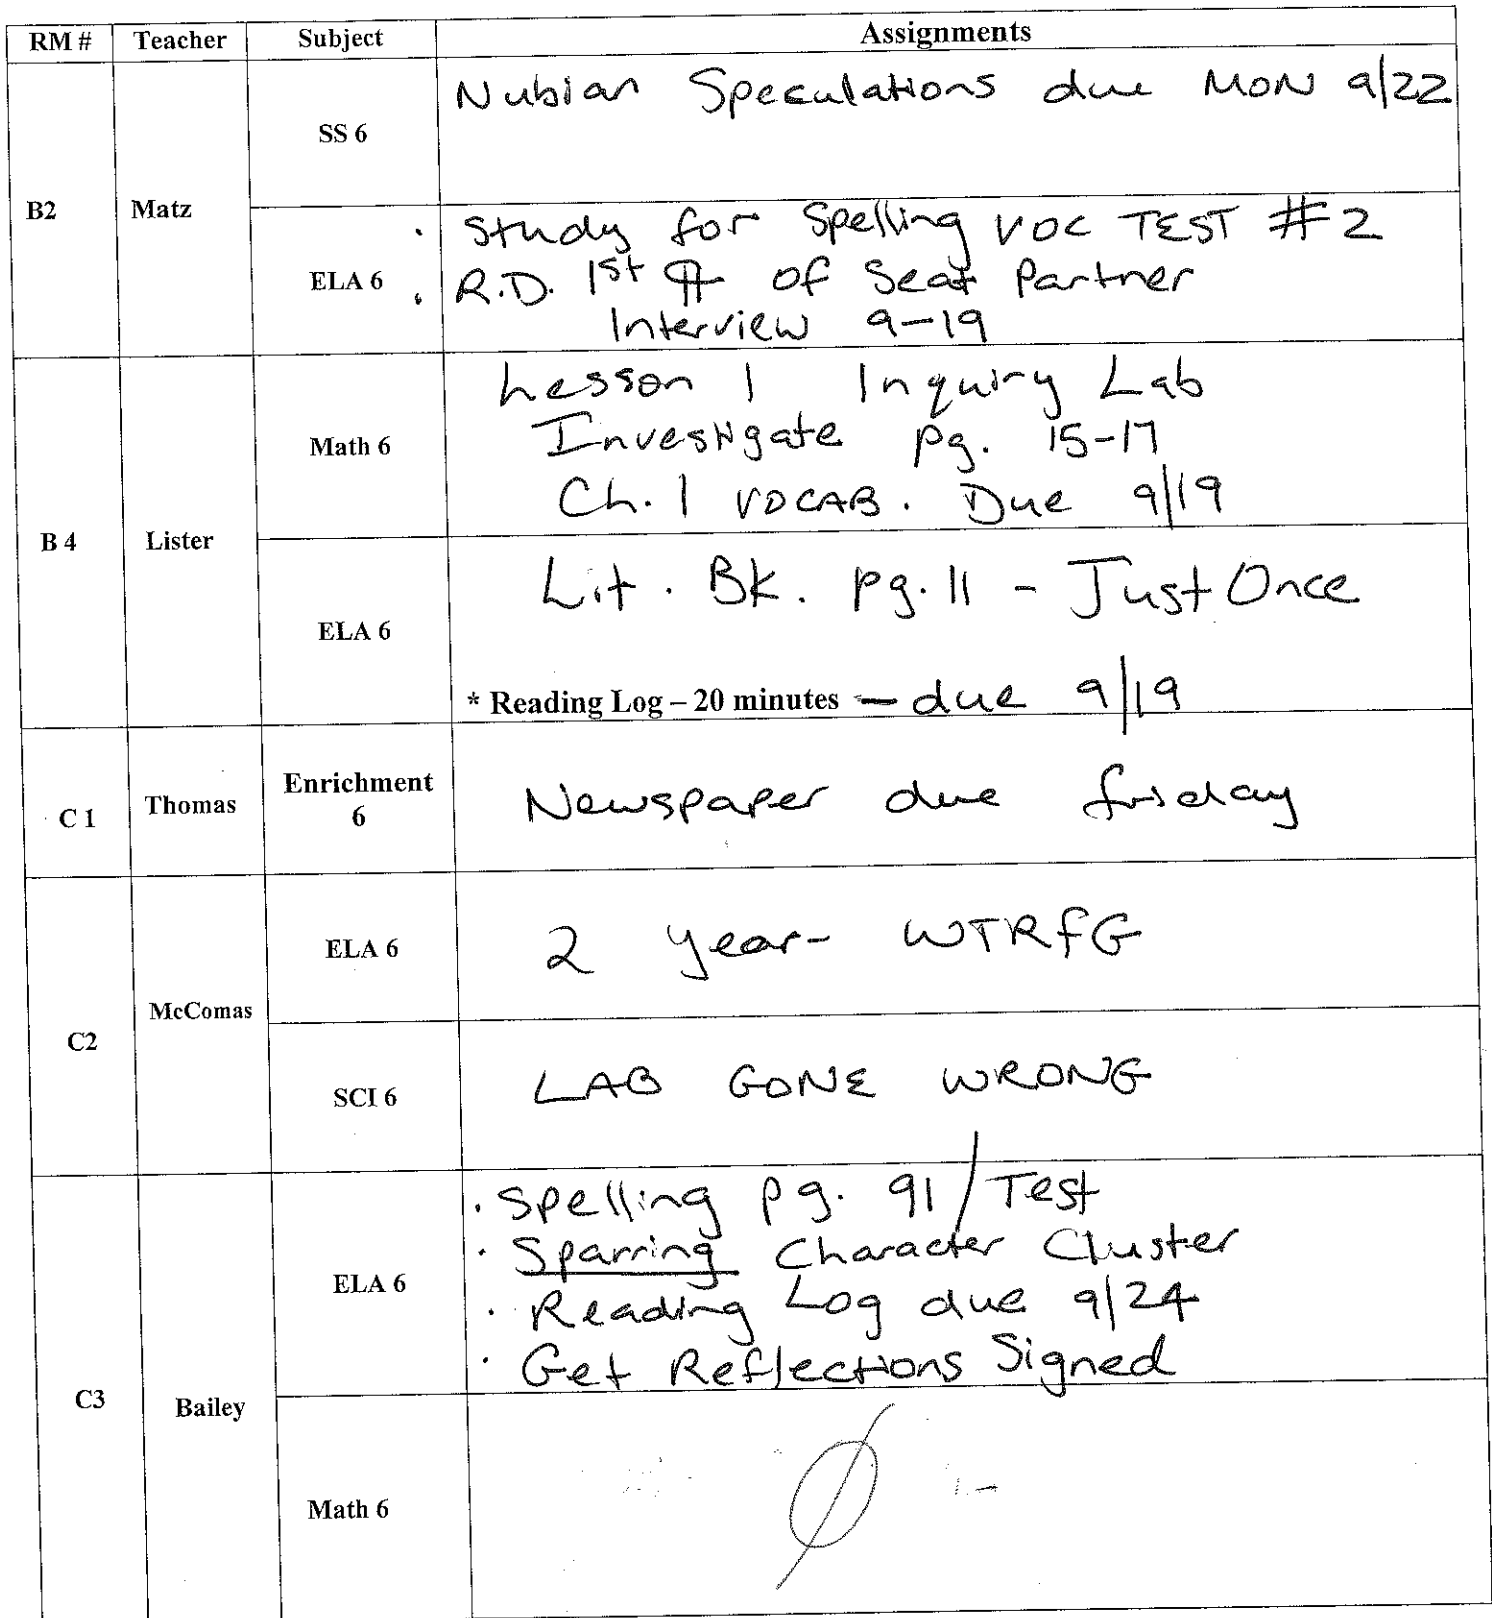 RM # Teacher Subject Assignments
B2 Matz SS 6 Nubian Speculations due MON 9/22
ELA 6 · Study for Spelling VOC TEST #2
· R.D. 1st ¶ of Seat Partner
Interview 9-19
B 4 Lister Math 6 Lesson 1 Inquiry Lab
Investigate pg. 15-17
Ch. 1 VOCAB. Due 9/19
ELA 6 Lit. Bk. pg. 11 - Just Once
* Reading Log – 20 minutes — due 9/19
C 1 Thomas Enrichment 6 Newspaper due friday
C2 McComas ELA 6 2 year- WTRfG
SCI 6 LAB GONE WRONG
C3 Bailey ELA 6 · Spelling pg. 91/Test
· Sparring Character Cluster
· Reading Log due 9/24
· Get Reflections Signed
Math 6 Ø